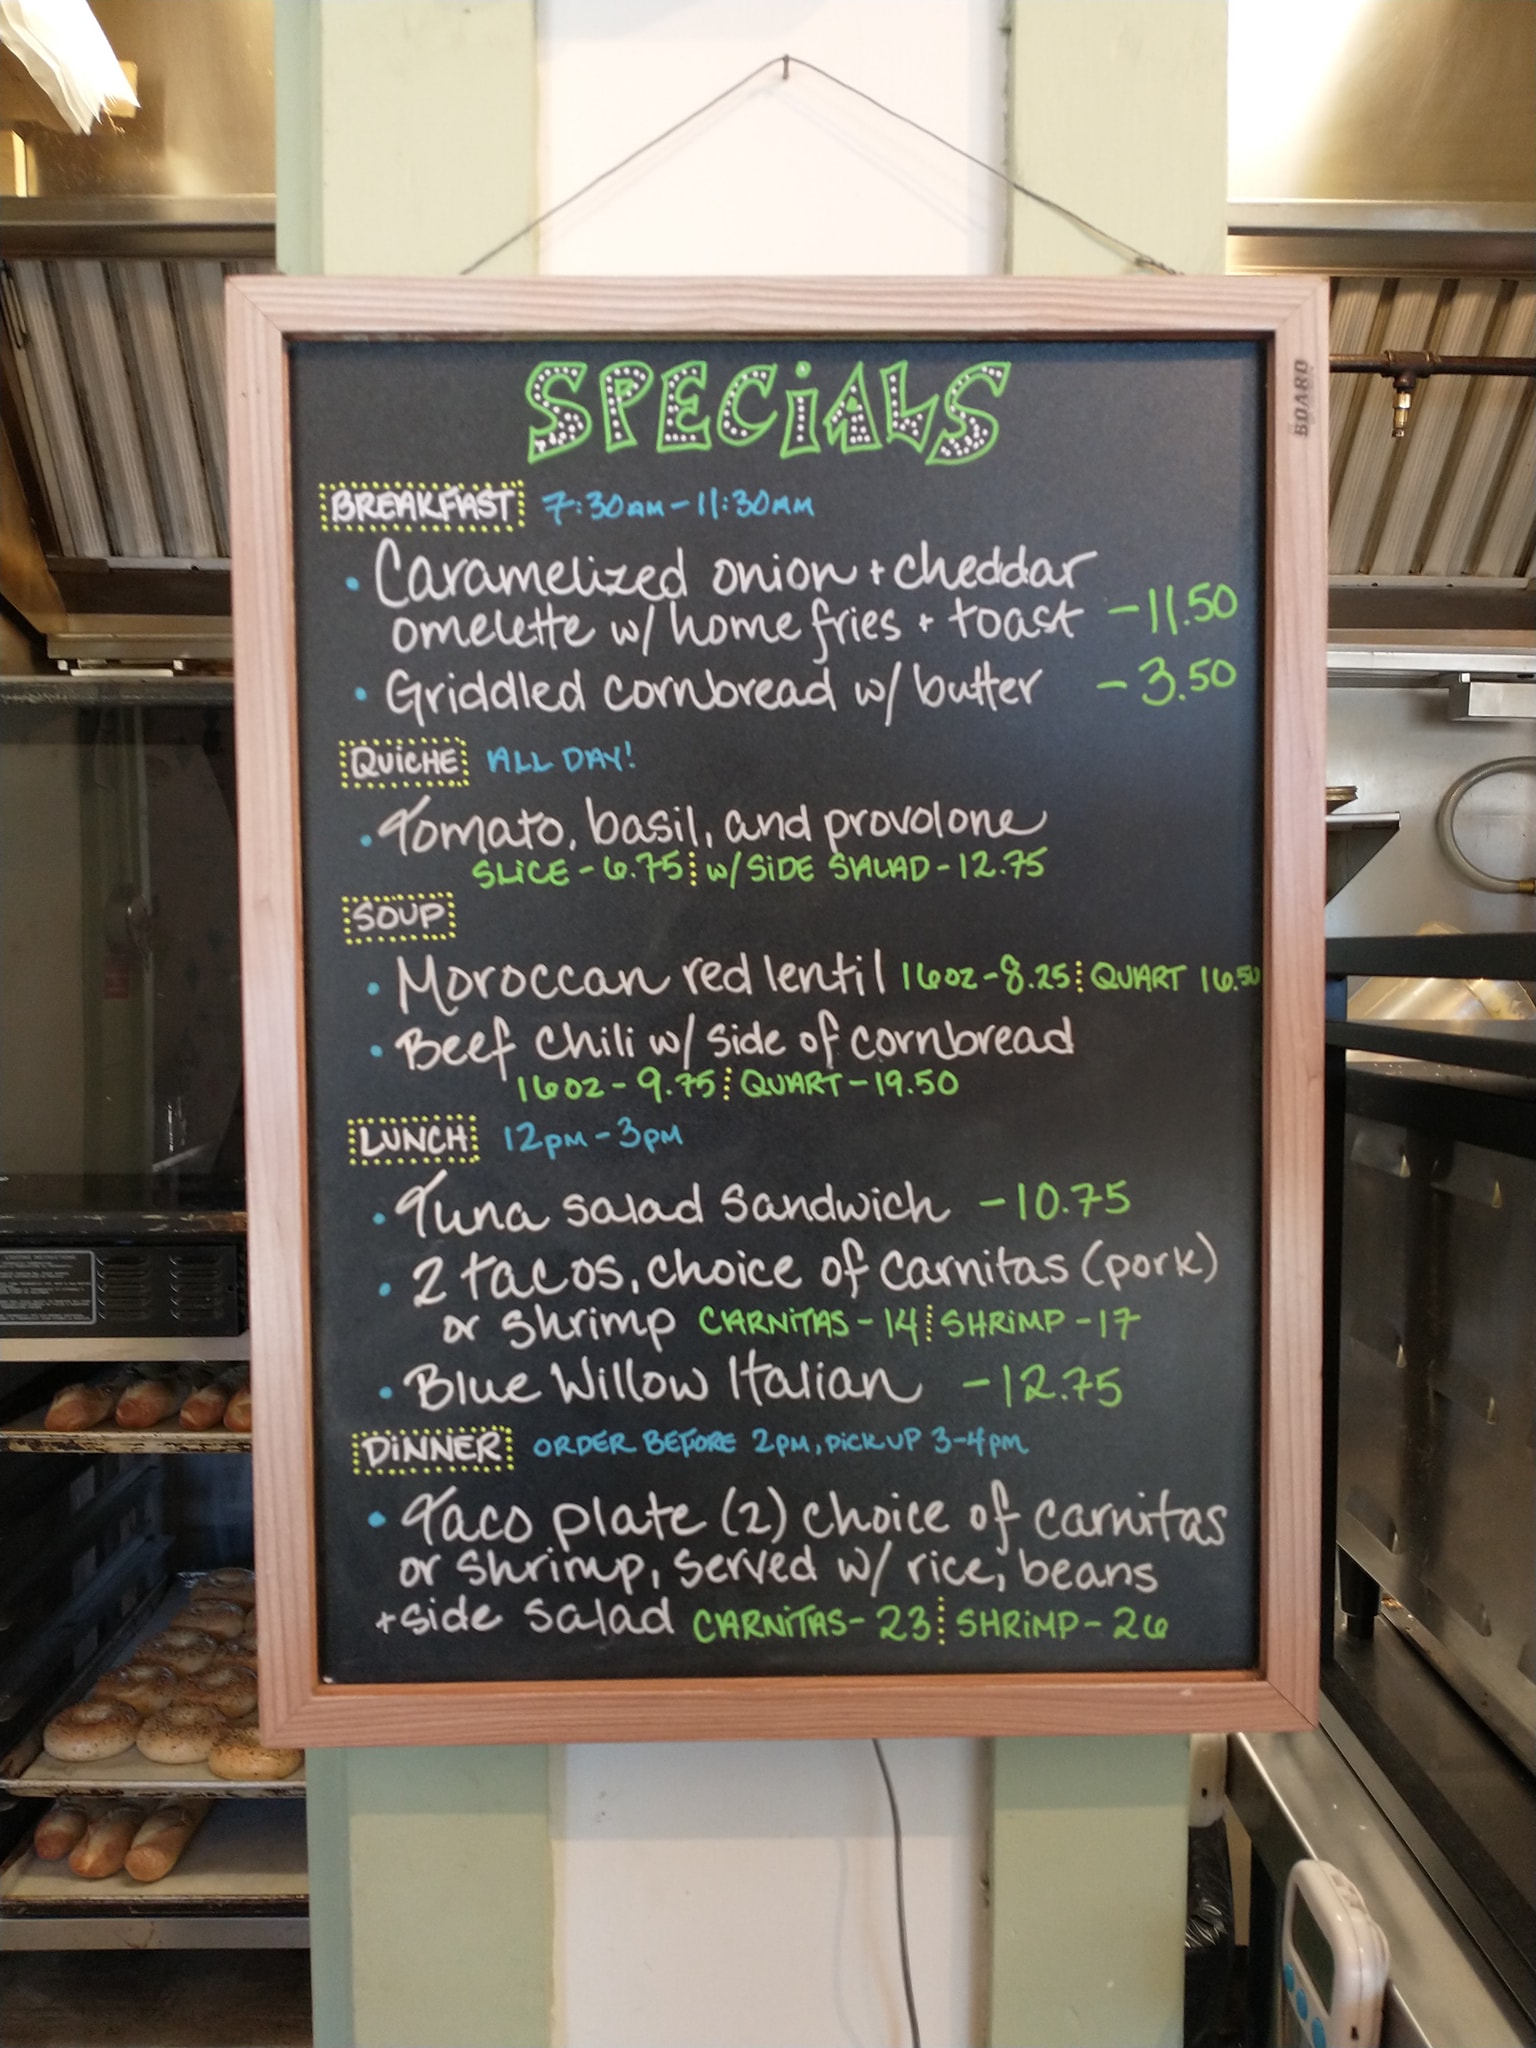 SPECiALS
BOARD
BREAKFAST 7:30AM-11:30AM
• Caramelized onion + cheddar
omelette w/ home fries + toast -11.50
• Griddled cornbread w/ butter -3.50
QUiCHE ALL DAY!
• Tomato, basil, and provolone
SLiCE - 6.75 w/ SiDE SALAD - 12.75
SOUP
• Moroccan red lentil 16oz - 8.25 QUART 16.50
• Beef chili w/ side of cornbread
16oz - 9.75 QUART - 19.50
LUNCH 12pm - 3pm
• Tuna salad sandwich -10.75
• 2 tacos, choice of carnitas (pork)
or shrimp CARNiTAS - 14 SHRiMP - 17
• Blue Willow Italian -12.75
DiNNER ORDER BEFORE 2pm, PiCK UP 3-4pm
• Taco plate (2) choice of carnitas
or shrimp, served w/ rice, beans
+ side salad CARNiTAS - 23 SHRiMP - 26